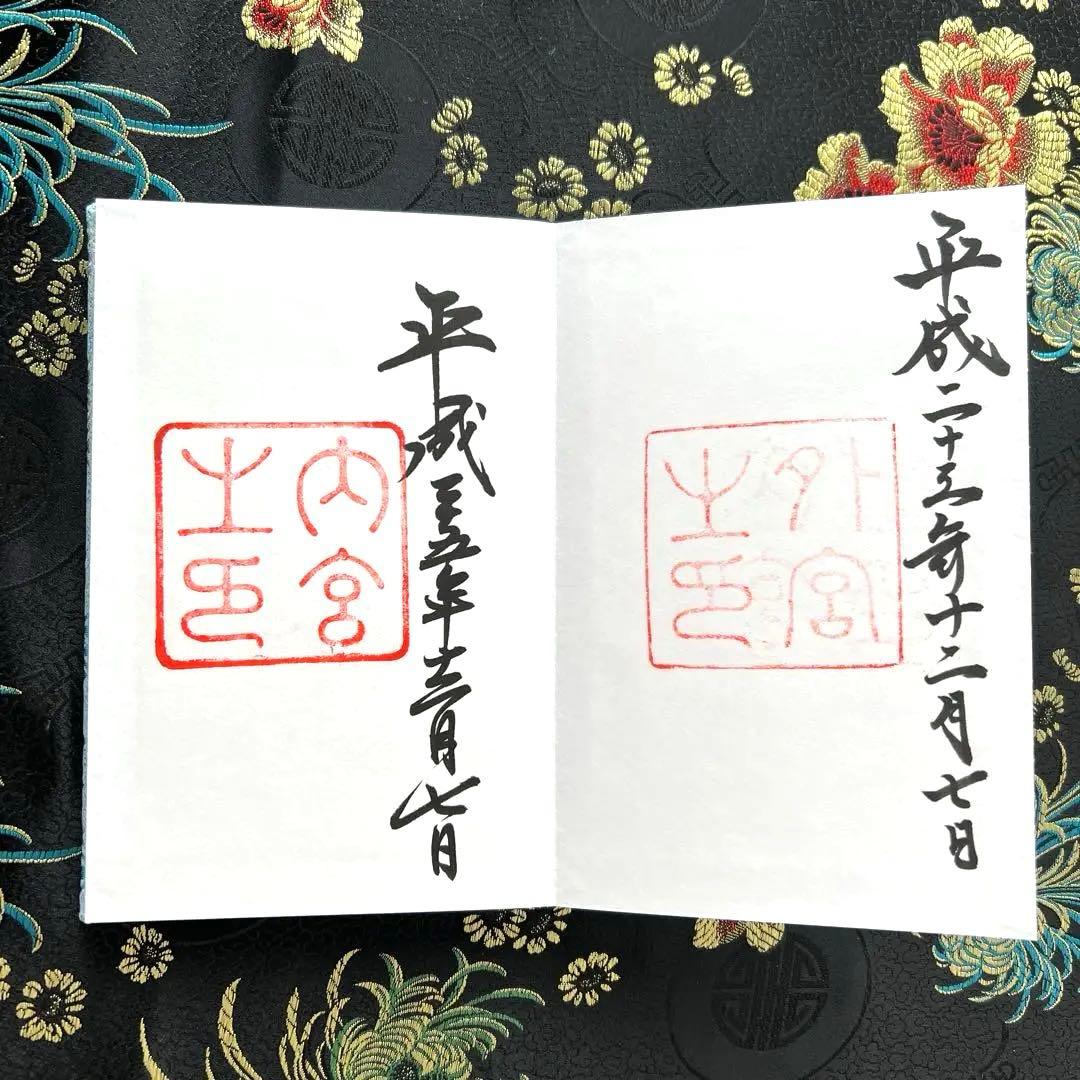 平成二十五年十二月七日
外宮
之印
平成二十五年十二月七日
内宮
之印